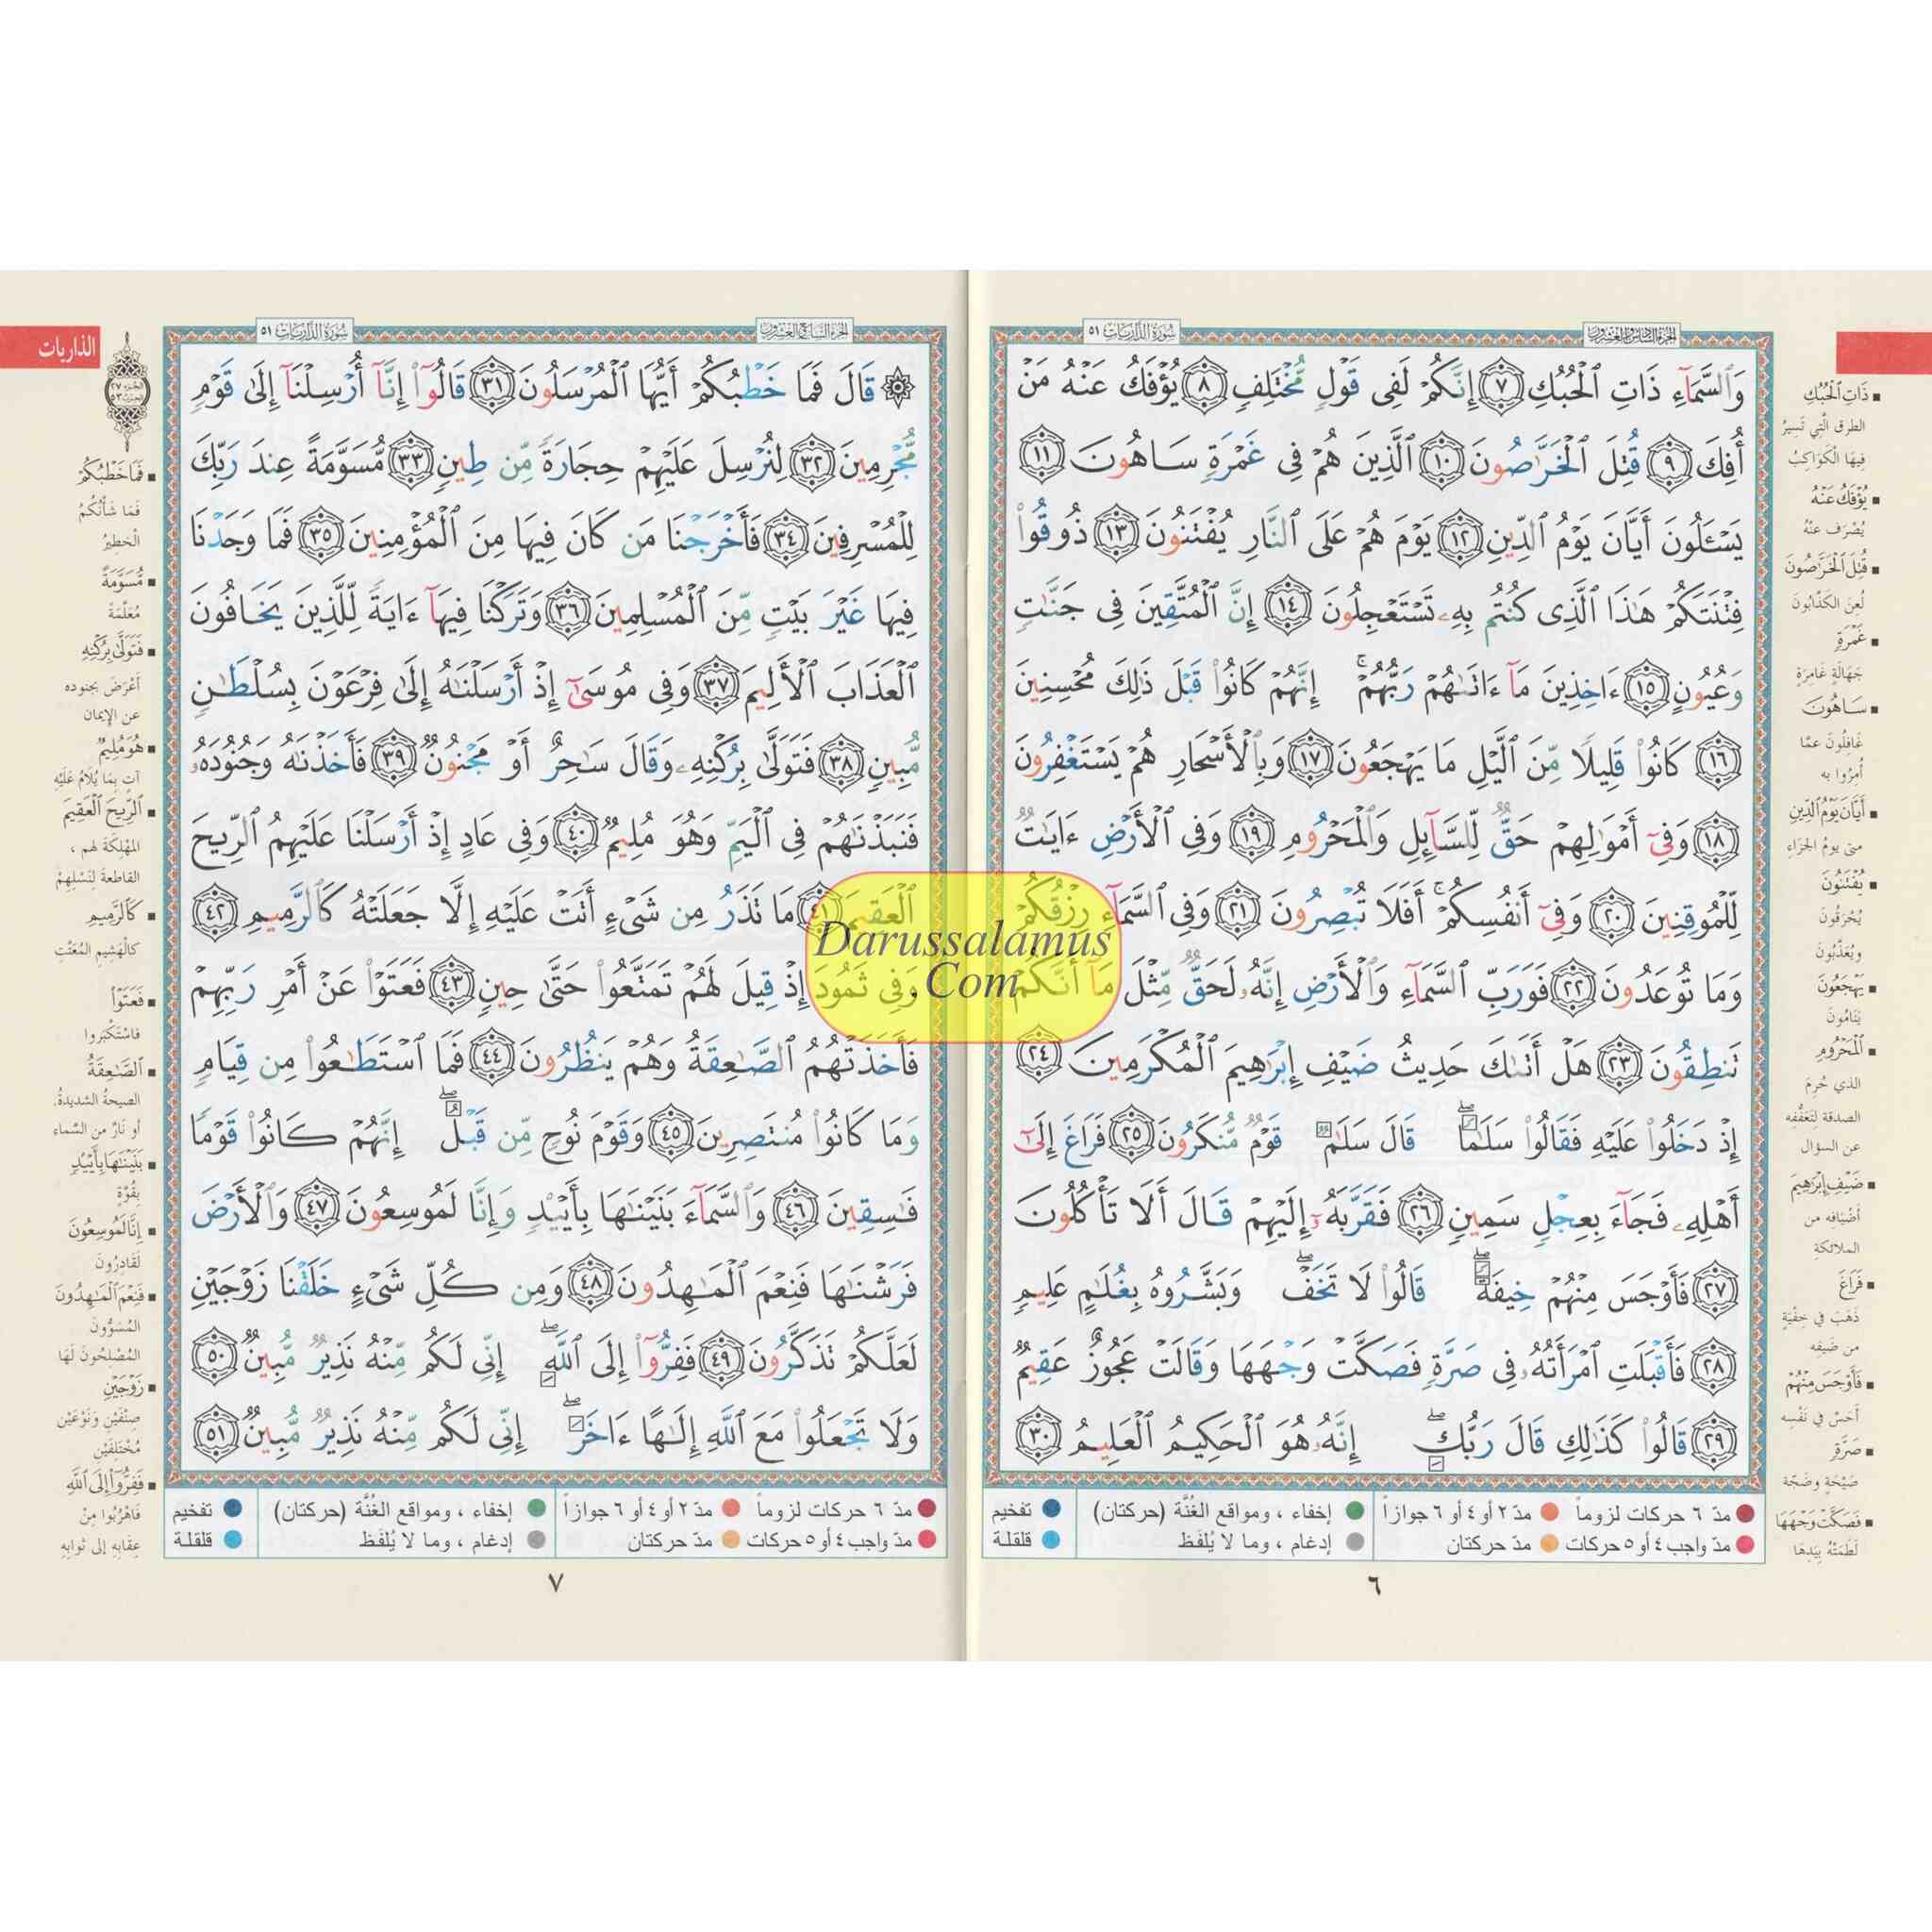 الجزء السادس والعشرون
سورة الذاريات ٥١
وَٱلسَّمَآءِ ذَاتِ ٱلْحُبُكِ ٧ إِنَّكُمْ لَفِى قَوْلٍ مُّخْتَلِفٍ ٨ يُؤْفَكُ عَنْهُ مَنْ
أُفِكَ ٩ قُتِلَ ٱلْخَرَّٰصُونَ ١٠ ٱلَّذِينَ هُمْ فِى غَمْرَةٍ سَاهُونَ ١١
يَسْـَٔلُونَ أَيَّانَ يَوْمُ ٱلدِّينِ ١٢ يَوْمَ هُمْ عَلَى ٱلنَّارِ يُفْتَنُونَ ١٣ ذُوقُوا۟
فِتْنَتَكُمْ هَٰذَا ٱلَّذِى كُنتُم بِهِۦ تَسْتَعْجِلُونَ ١٤ إِنَّ ٱلْمُتَّقِينَ فِى جَنَّٰتٍ
وَعُيُونٍ ١٥ ءَاخِذِينَ مَآ ءَاتَىٰهُمْ رَبُّهُمْ ۚ إِنَّهُمْ كَانُوا۟ قَبْلَ ذَٰلِكَ مُحْسِنِينَ
١٦ كَانُوا۟ قَلِيلًا مِّنَ ٱلَّيْلِ مَا يَهْجَعُونَ ١٧ وَبِٱلْأَسْحَارِ هُمْ يَسْتَغْفِرُونَ
١٨ وَفِىٓ أَمْوَٰلِهِمْ حَقٌّ لِّلسَّآئِلِ وَٱلْمَحْرُومِ ١٩ وَفِى ٱلْأَرْضِ ءَايَٰتٌ
لِّلْمُوقِنِينَ ٢٠ وَفِىٓ أَنفُسِكُمْ ۚ أَفَلَا تُبْصِرُونَ ٢١ وَفِى ٱلسَّمَآءِ رِزْقُكُمْ
وَمَا تُوعَدُونَ ٢٢ فَوَرَبِّ ٱلسَّمَآءِ وَٱلْأَرْضِ إِنَّهُۥ لَحَقٌّ مِّثْلَ مَآ أَنَّكُمْ
تَنطِقُونَ ٢٣ هَلْ أَتَىٰكَ حَدِيثُ ضَيْفِ إِبْرَٰهِيمَ ٱلْمُكْرَمِينَ ٢٤
إِذْ دَخَلُوا۟ عَلَيْهِ فَقَالُوا۟ سَلَٰمًا ۖ قَالَ سَلَٰمٌ قَوْمٌ مُّنكَرُونَ ٢٥ فَرَاغَ إِلَىٰٓ
أَهْلِهِۦ فَجَآءَ بِعِجْلٍ سَمِينٍ ٢٦ فَقَرَّبَهُۥٓ إِلَيْهِمْ قَالَ أَلَا تَأْكُلُونَ
٢٧ فَأَوْجَسَ مِنْهُمْ خِيفَةً ۖ قَالُوا۟ لَا تَخَفْ ۖ وَبَشَّرُوهُ بِغُلَٰمٍ عَلِيمٍ
٢٨ فَأَقْبَلَتِ ٱمْرَأَتُهُۥ فِى صَرَّةٍ فَصَكَّتْ وَجْهَهَا وَقَالَتْ عَجُوزٌ عَقِيمٌ
٢٩ قَالُوا۟ كَذَٰلِكِ قَالَ رَبُّكِ ۖ إِنَّهُۥ هُوَ ٱلْحَكِيمُ ٱلْعَلِيمُ ٣٠
ذَاتِ ٱلْحُبُكِ
الطرق الَّتِي تَسِيرُ
فِيهَا الكَوَاكِبُ
يُؤْفَكُ عَنْهُ
يُصْرَف عَنْهُ
قُتِلَ ٱلْخَرَّٰصُونَ
لُعِنَ الكَذّابُونَ
غَمْرَةٍ
جَهَالَةٍ غَامِرَةٍ
سَاهُونَ
غَافِلُونَ عمَّا
أُمِرُوا به
أَيَّانَ يَوْمُ ٱلدِّينِ
متى يومُ الجزَاءِ
يُفْتَنُونَ
يُحْرَقُونَ
ويُعَذَّبُونَ
يَهْجَعُونَ
يَنَامُونَ
ٱلْمَحْرُومِ
الذي حُرِمَ
الصدقة لِتَعَفُّفه
عن السؤال
ضَيْفِ إِبْرَٰهِيمَ
أَضْيَافه من
الملائكةِ
فَرَاغَ
ذَهَبَ في خِفْيَةٍ
من ضَيفِه
فَأَوْجَسَ مِنْهُمْ
أَحَسَّ في نَفْسِه
صَرَّةٍ
صَيْحَةٍ وضَجّة
فَصَكَّتْ وَجْهَهَا
لَطَمَتْهُ بِيَدِهَا
مدّ ٦ حركات لزوماً مدّ ٢ أو ٤ أو ٦ جوازاً إخفاء ، ومواقع الغُنَّة (حركتان) تفخيم
مدّ واجب ٤ أو ٥ حركات مدّ حركتان إدغام ، وما لا يُلفَظ قلقلة
٦
الجزء السابع والعشرون
سورة الذاريات ٥١
الذاريات
الجزء ٢٧
الحزب ٥٣
۞ قَالَ فَمَا خَطْبُكُمْ أَيُّهَا ٱلْمُرْسَلُونَ ٣١ قَالُوٓا۟ إِنَّآ أُرْسِلْنَآ إِلَىٰ قَوْمٍ
مُّجْرِمِينَ ٣٢ لِنُرْسِلَ عَلَيْهِمْ حِجَارَةً مِّن طِينٍ ٣٣ مُّسَوَّمَةً عِندَ رَبِّكَ
لِلْمُسْرِفِينَ ٣٤ فَأَخْرَجْنَا مَن كَانَ فِيهَا مِنَ ٱلْمُؤْمِنِينَ ٣٥ فَمَا وَجَدْنَا
فِيهَا غَيْرَ بَيْتٍ مِّنَ ٱلْمُسْلِمِينَ ٣٦ وَتَرَكْنَا فِيهَآ ءَايَةً لِّلَّذِينَ يَخَافُونَ
ٱلْعَذَابَ ٱلْأَلِيمَ ٣٧ وَفِى مُوسَىٰٓ إِذْ أَرْسَلْنَٰهُ إِلَىٰ فِرْعَوْنَ بِسُلْطَٰنٍ
مُّبِينٍ ٣٨ فَتَوَلَّىٰ بِرُكْنِهِۦ وَقَالَ سَٰحِرٌ أَوْ مَجْنُونٌ ٣٩ فَأَخَذْنَٰهُ وَجُنُودَهُۥ
فَنَبَذْنَٰهُمْ فِى ٱلْيَمِّ وَهُوَ مُلِيمٌ ٤٠ وَفِى عَادٍ إِذْ أَرْسَلْنَا عَلَيْهِمُ ٱلرِّيحَ
ٱلْعَقِيمَ ٤١ مَا تَذَرُ مِن شَىْءٍ أَتَتْ عَلَيْهِ إِلَّا جَعَلَتْهُ كَٱلرَّمِيمِ ٤٢
وَفِى ثَمُودَ إِذْ قِيلَ لَهُمْ تَمَتَّعُوا۟ حَتَّىٰ حِينٍ ٤٣ فَعَتَوْا۟ عَنْ أَمْرِ رَبِّهِمْ
فَأَخَذَتْهُمُ ٱلصَّٰعِقَةُ وَهُمْ يَنظُرُونَ ٤٤ فَمَا ٱسْتَطَٰعُوا۟ مِن قِيَامٍ
وَمَا كَانُوا۟ مُنتَصِرِينَ ٤٥ وَقَوْمَ نُوحٍ مِّن قَبْلُ ۖ إِنَّهُمْ كَانُوا۟ قَوْمًا
فَٰسِقِينَ ٤٦ وَٱلسَّمَآءَ بَنَيْنَٰهَا بِأَيْي۟دٍ وَإِنَّا لَمُوسِعُونَ ٤٧ وَٱلْأَرْضَ
فَرَشْنَٰهَا فَنِعْمَ ٱلْمَٰهِدُونَ ٤٨ وَمِن كُلِّ شَىْءٍ خَلَقْنَا زَوْجَيْنِ
لَعَلَّكُمْ تَذَكَّرُونَ ٤٩ فَفِرُّوٓا۟ إِلَى ٱللَّهِ ۖ إِنِّى لَكُم مِّنْهُ نَذِيرٌ مُّبِينٌ ٥٠
وَلَا تَجْعَلُوا۟ مَعَ ٱللَّهِ إِلَٰهًا ءَاخَرَ ۖ إِنِّى لَكُم مِّنْهُ نَذِيرٌ مُّبِينٌ ٥١
فَمَا خَطْبُكُمْ
فَمَا شَأْنُكُمُ
الْخَطِيرُ
مُسَوَّمَةً
مُعَلَّمَةً
فَتَوَلَّىٰ بِرُكْنِهِ
أَعْرَضَ بجنوده
عن الإيمان
هُوَ مُلِيمٌ
آتٍ بمَا يُلَامُ عَلَيْهِ
ٱلرِّيحَ ٱلْعَقِيمَ
المُهْلِكَةَ لهم ،
القاطعةَ لِنَسْلِهِمْ
كَٱلرَّمِيمِ
كالْهَشِيمِ المُفَتَّتِ
فَعَتَوْا۟
فاسْتَكْبَروا
ٱلصَّٰعِقَةُ
الصيحةُ الشديدةُ،
أو نَارٌ من السَّماء
بَنَيْنَٰهَا بِأَيْي۟دٍ
بِقُوَّةٍ
إِنَّا لَمُوسِعُونَ
لَقَادِرُونَ
فَنِعْمَ ٱلْمَٰهِدُونَ
المُسَوُّونَ
المُصْلِحُونَ لَهَا
زَوْجَيْنِ
صِنْفَيْنِ ونَوْعَيْنِ
مُخْتَلِفَيْنِ
فَفِرُّوٓا۟ إِلَى ٱللَّهِ
فَاهْرُبُوا مِنْ
عِقَابِهِ إلى ثوابِهِ
مدّ ٦ حركات لزوماً مدّ ٢ أو ٤ أو ٦ جوازاً إخفاء ، ومواقع الغُنَّة (حركتان) تفخيم
مدّ واجب ٤ أو ٥ حركات مدّ حركتان إدغام ، وما لا يُلفَظ قلقلة
٧
Darussalamus
.Com